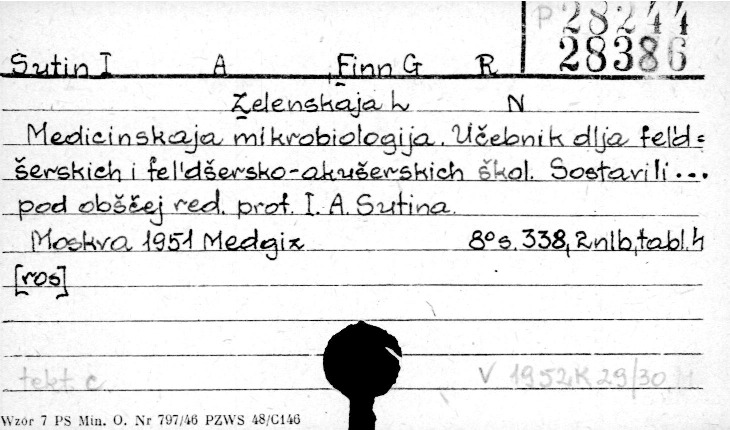 P 28244
28386
Sutin I A , Finn G R
Zelenskaja L N
Medicinskaja mikrobiologija. Učebnik dlja feld=
šerskich i fel'dšersko-akušerskich škol. Sostavili ...
pod obščej red. prof. I. A. Sutina.
Moskva 1951 Medgiz 8° s. 338, 2 nlb, tabl. 4
[ros]
tekt. c. V 1952 K 29/30
Wzór 7 PS Min. O. Nr 797/46 PZWS 48/C146